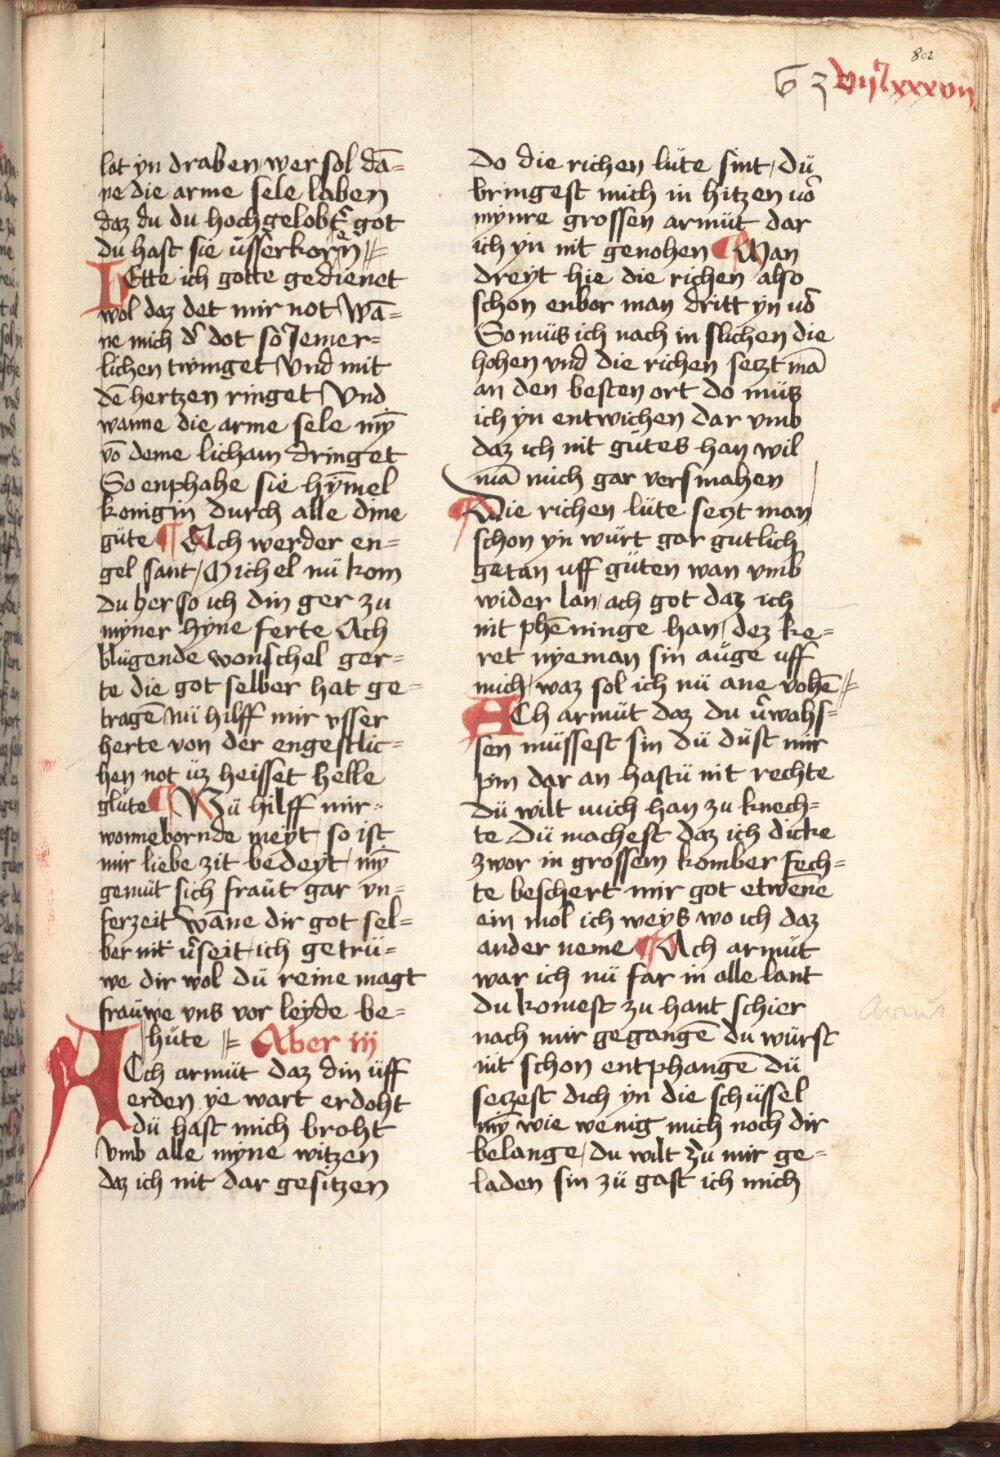 802
G 3 viijlxxxvij
lot yn draben wer sol dā=
ne die arme sele laben
daz du du hochgelobt͛ got
du hast sie üsserkorn
HEtte ich gotte gedienet
wol daz det mir not Wā=
ne mich d͛ dot so Jemer=
lichen twinget Vnd mit
dē hertzen ringet Vnd
wanne die arme sele mȳ
vō deme licham dringet
So enphahe sie hȳmel
konigin durch alle dine
güte ¶ Ach werder en=
gel sant Michel nü kom
du her so ich din ger zu
myner hyne ferte Ach
blügende wonschel ger=
te die got selber hat ge=
tragē Nü hilff mir vsser
herte von der engestlic=
hen not üz heisset helle
glüte ¶ Nü hilff mir
wonnebornde meyt so ist
mir liebe zit bedeyt mȳ
gemüt sich fraüt gar vn=
ferzeit Wāne dir got sel=
ber nit v͛seit ich getrü=
we dir wol dü reine magt
fraüwe vns vor leyde be=
hüte Aber iij
ACch armüt daz din üff
erden ye wart erdoht
dü hast mich broht
Vmb alle myne witzen
daz ich nit dar gesitzen
Do die richen lüte sint dü
bringest mich in hitzen vō
mynre grossen armüt dar
ich yn nit genohen ¶ Man
dreyt hie die richen also
schon enbor man dritt yn vō
So müs ich noch in slichen die
hohen vnd die richen setzt mā
an den besten ort do müs
ich yn entwichen dar vmb
daz ich nit gütes han wil
mā mich gar versmahen
¶ Die richen lüte setzt man
schon yn würt gar gutlich
getan uff güten wan vmb
wider lan ach got daz ich
nit phēninge han dez ke=
ret nyeman sin aüge uff
mich waz sol ich nü ane vohē
ACh armüt daz du v͛wahs=
sen müssest sin dü düst mir
pin dar an hastü nit rechte
Dü wilt mich han zu knech=
te Dü machest daz ich dicke
zwor in grossem komber fech=
te beschert mir got etwene
ein mol ich weys wo ich daz
ander neme ¶ Ach armüt
war ich nü far in alle lant
du komest zu hant schier
noch mir gegangē du würst
nit schon entphangē dü
setzest dich yn die schüssel
mȳ wie wenig mich noch dir
belange du wilt zü mir ge=
laden sin zü gast ich mich
Armüt